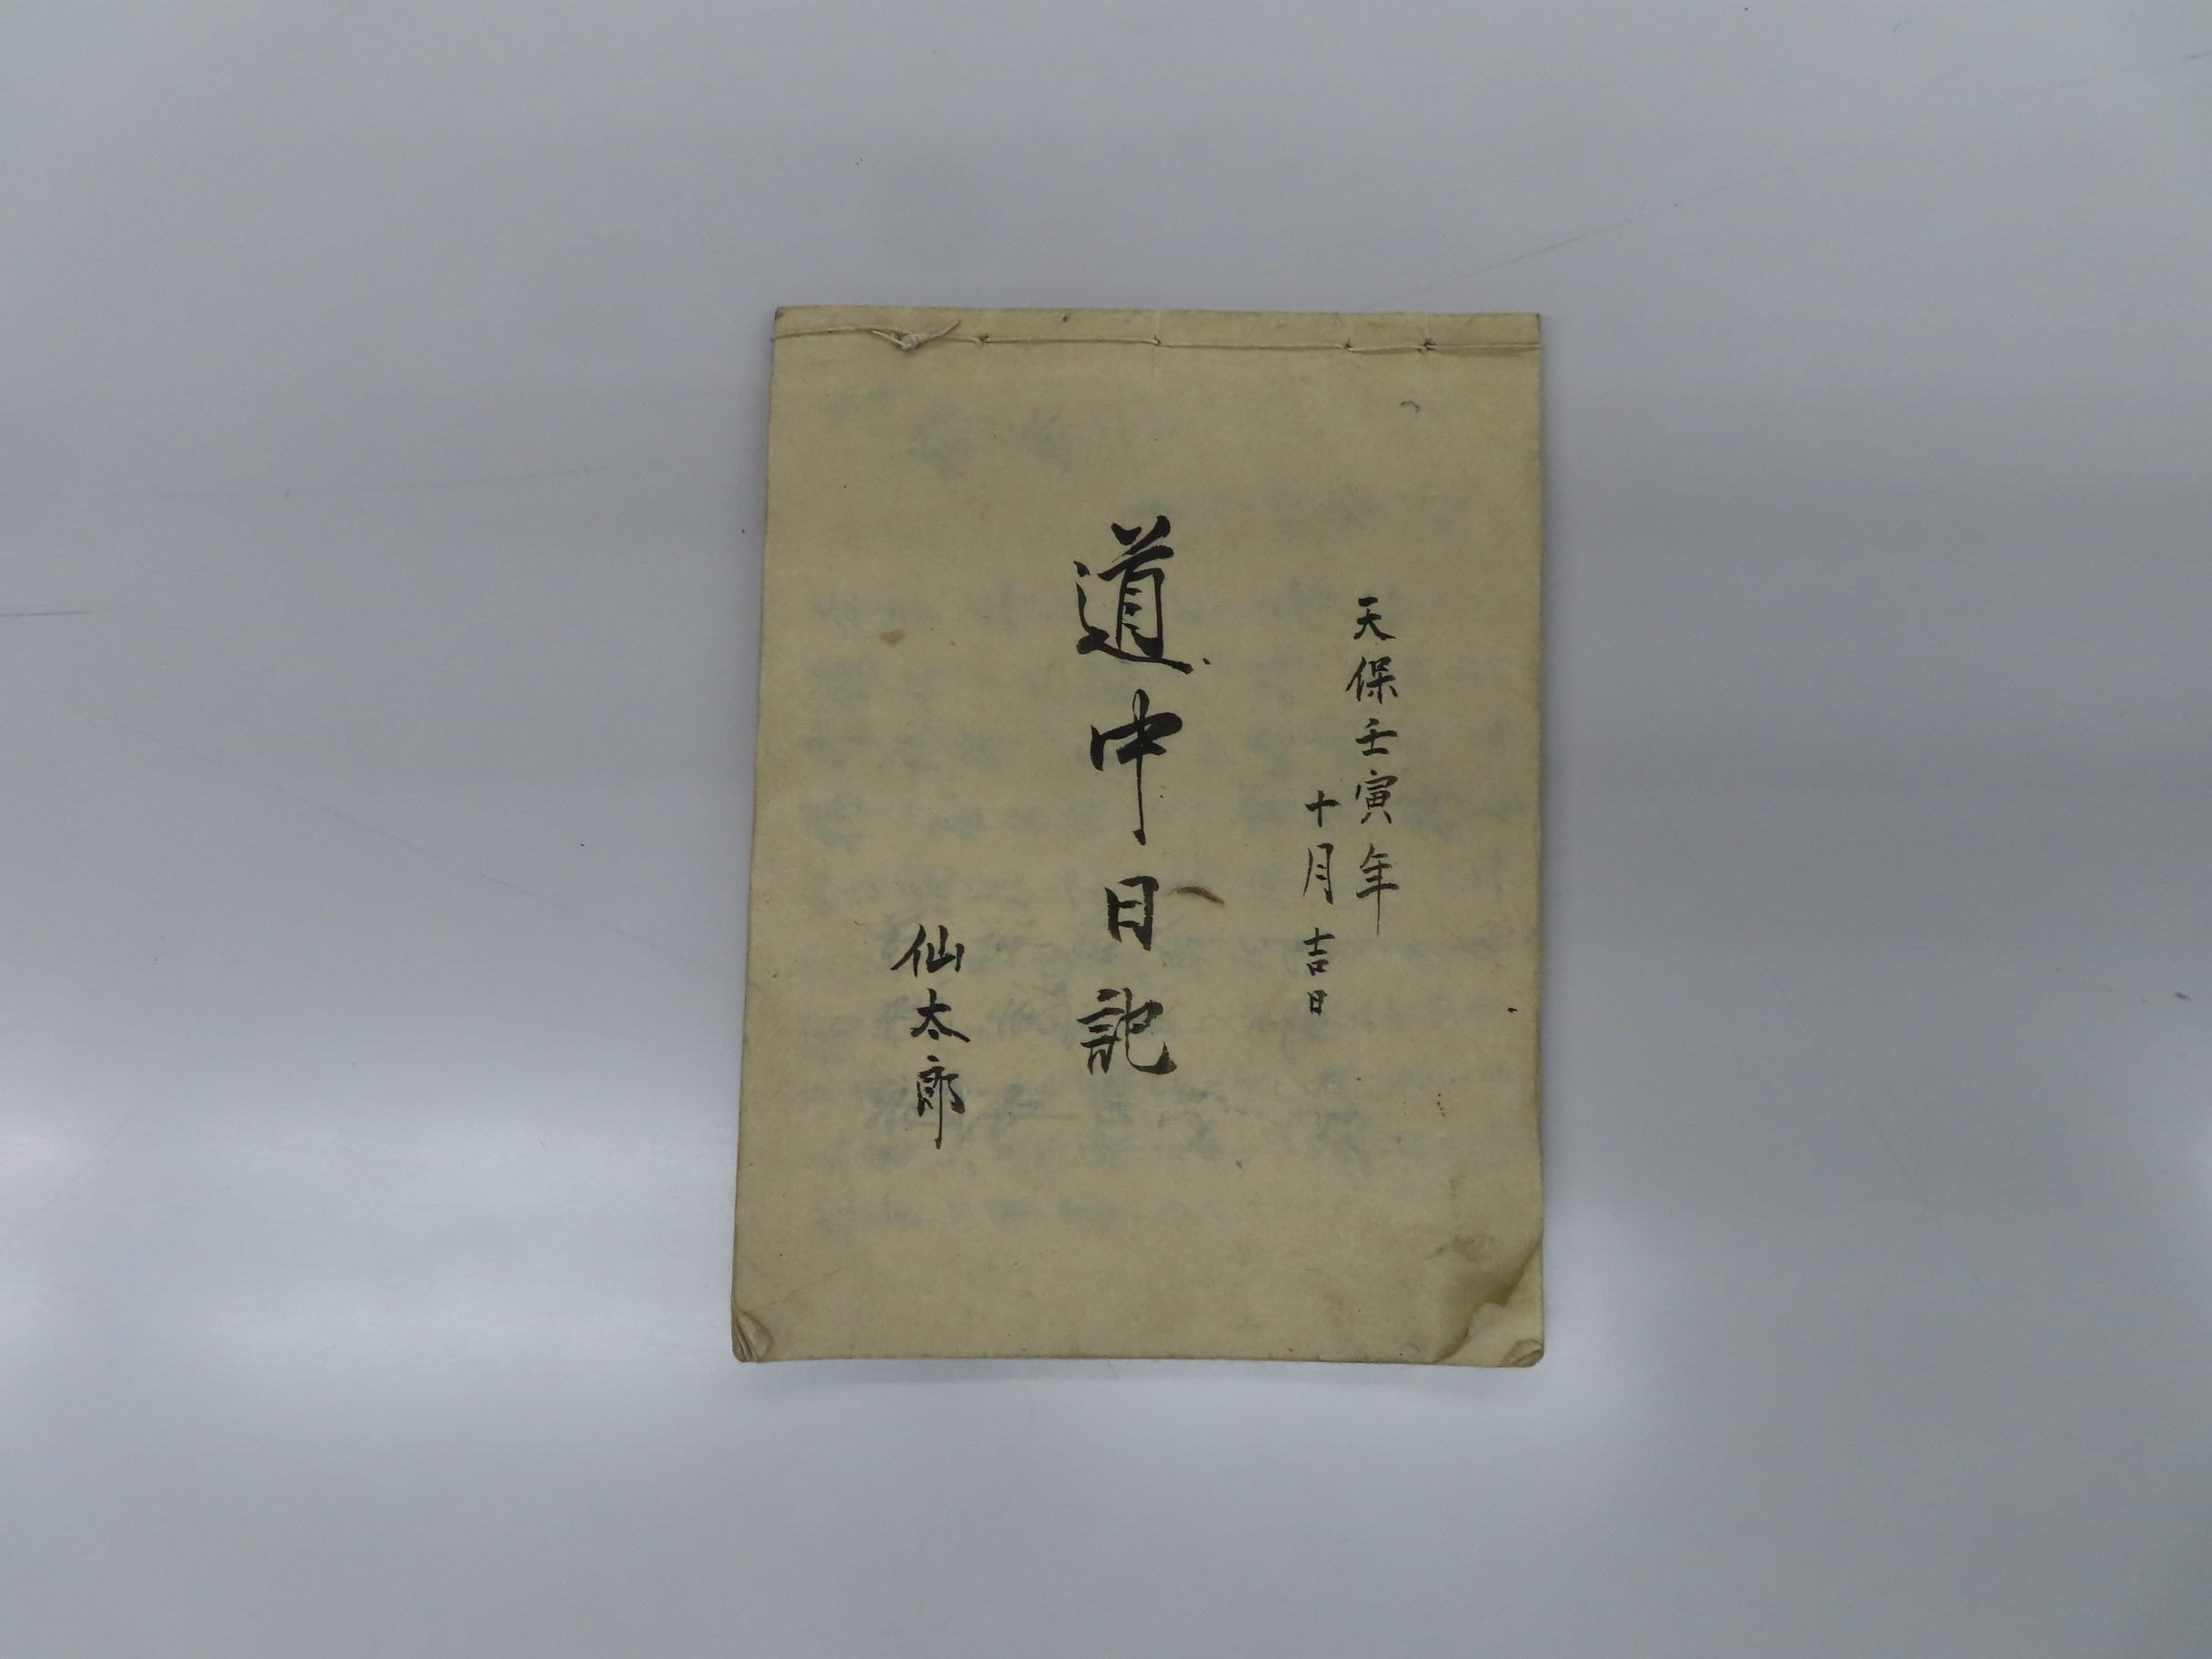 天保壬寅年
十月吉日
道中日記
仙太郎